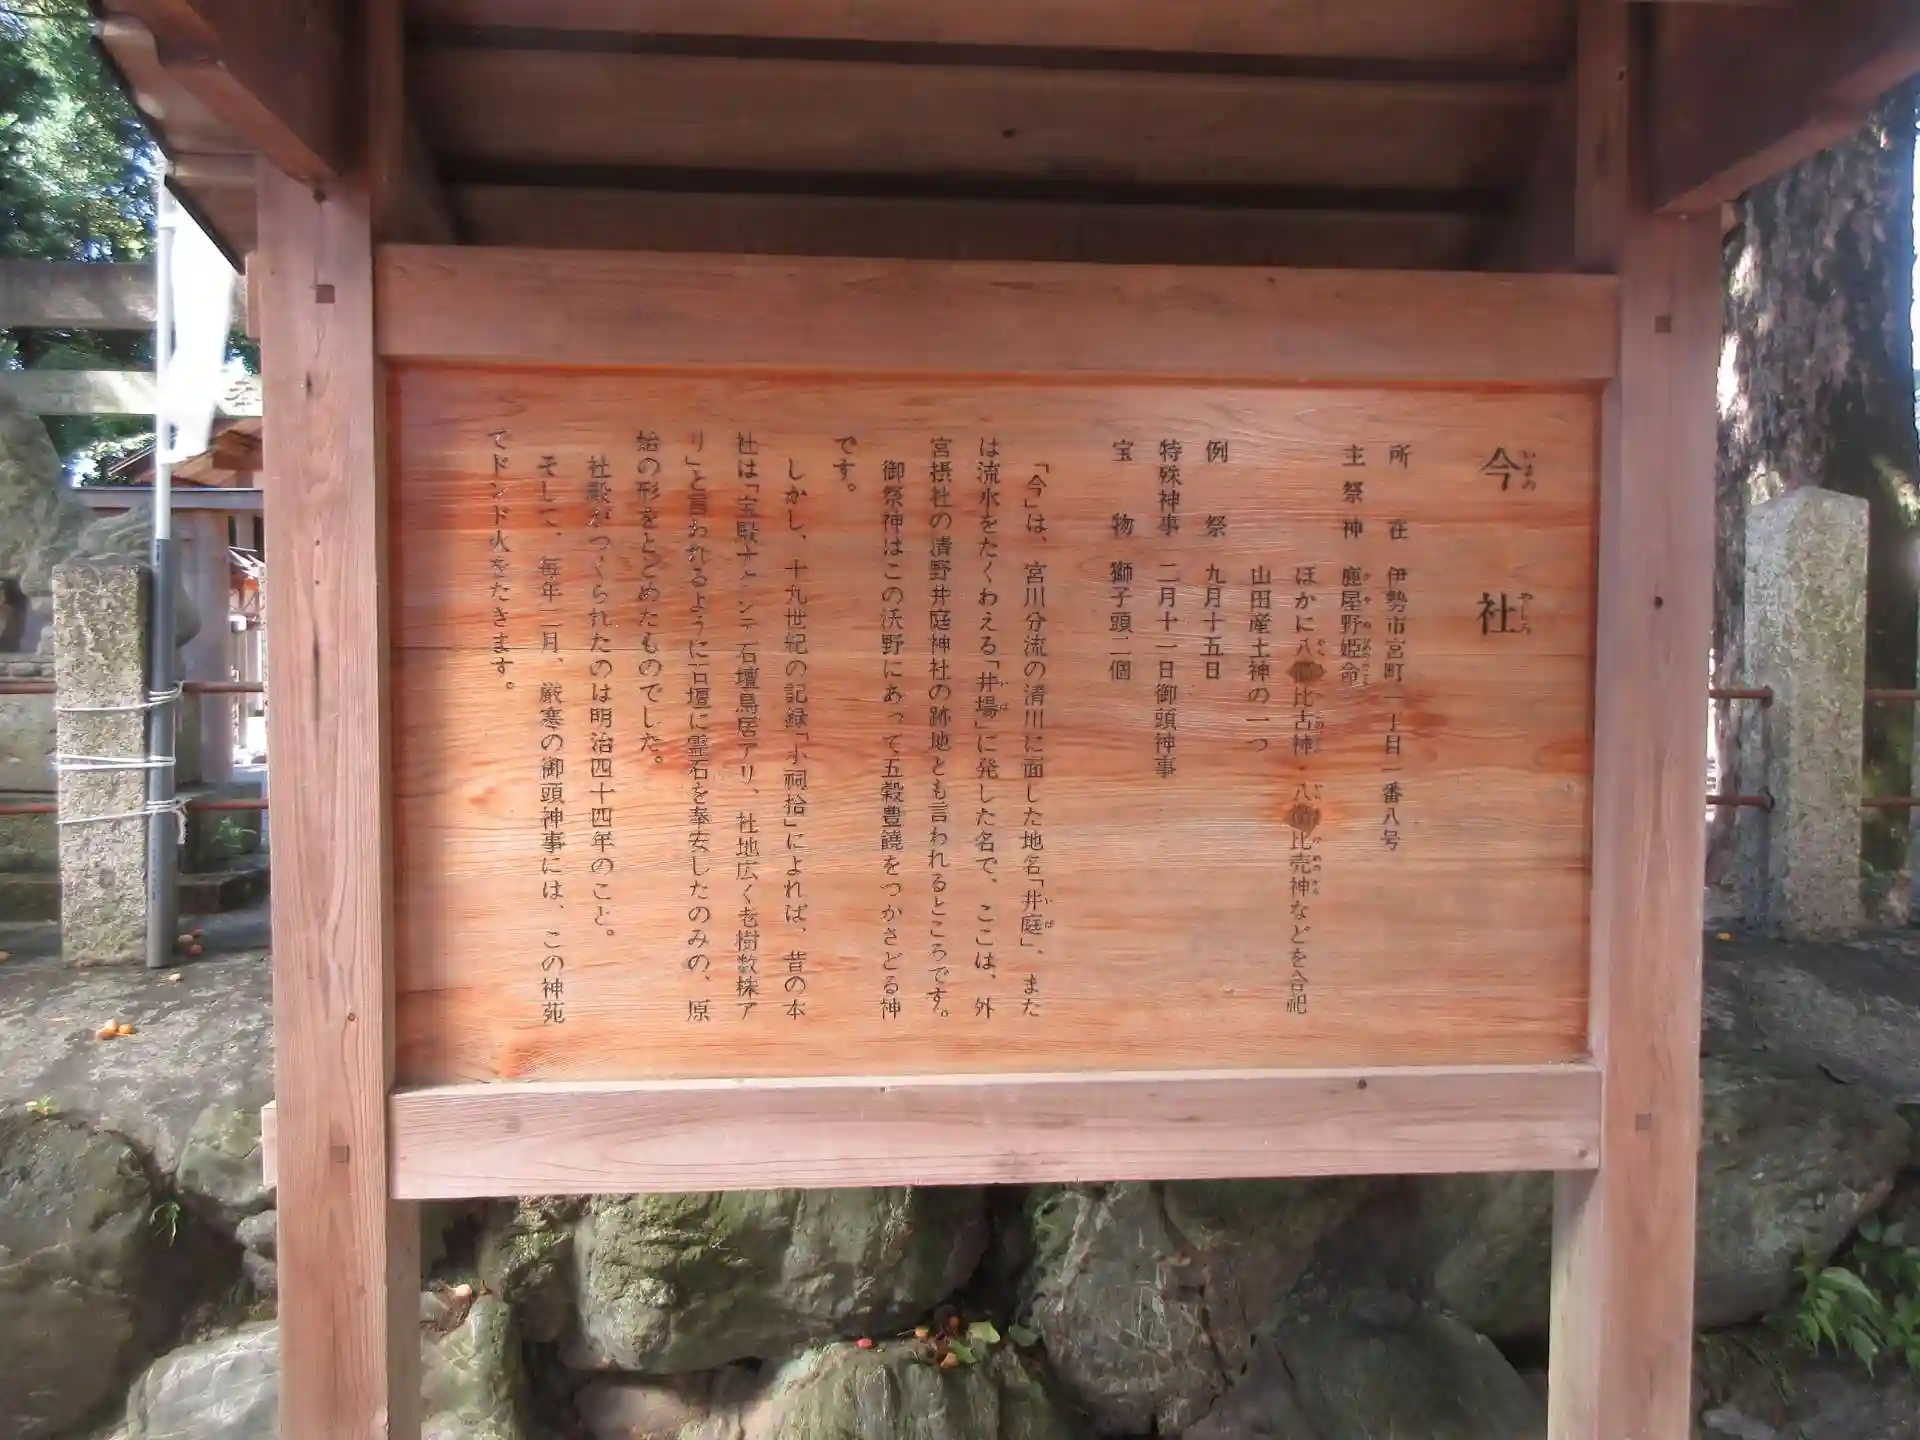 今社
所在 伊勢市宮町一丁目一番八号
主祭神 鹿屋野姫命
ほかに八衢比古神・八衢比売神などを合祀
山田産土神の一つ
例祭 九月十五日
特殊神事 二月十一日御頭神事
宝物 獅子頭二個
「今」は、宮川分流の清川に面した地名「井庭」、また
は流水をたくわえる「井場」に発した名で、ここは、外
宮摂社の清野井庭神社の跡地とも言われるところです。
御祭神はこの沃野にあって五穀豊饒をつかさどる神
です。
しかし、十九世紀の記録「小祠拾」によれば、昔の本
社は「宝殿ナクシテ石壇鳥居アリ、社地広く老樹数株ア
リ」と言われるように石壇に霊石を奉安したのみの、原
始の形をとどめたものでした。
社殿がつくられたのは明治四十四年のこと。
そして、毎年二月、厳寒の御頭神事には、この神苑
でドンド火をたきます。